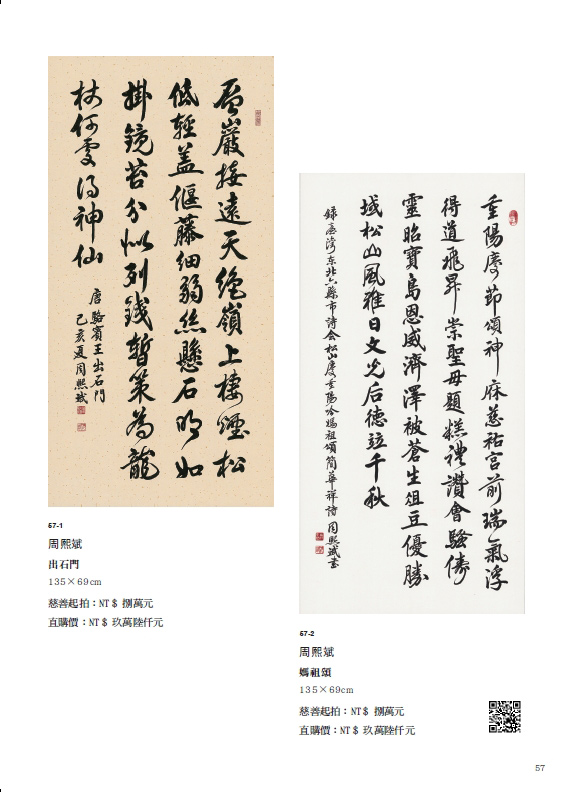 層巖接遠天絕嶺上棲煙松
低輕蓋偃藤細弱絲懸石明如
掛鏡苔分似列錢暫策為龍
杖何處得神仙
唐駱賓王出石門
己亥夏周熙斌
57-1
周熙斌
出石門
135×69cm
慈善起拍：NT$ 捌萬元
直購價：NT$ 玖萬陸仟元
重陽慶節頌神庥慈祐宮前瑞氣浮
得道飛昇崇聖母題糕禮讚會騷儔
靈昭寶島恩威濟澤被蒼生俎豆優勝
域松山風雅日文光后德竝千秋
錄臺灣東北六縣市詩會松山慶重陽吟媽祖頌簡華祥詩 周熙斌書
57-2
周熙斌
媽祖頌
135×69cm
慈善起拍：NT$ 捌萬元
直購價：NT$ 玖萬陸仟元
57